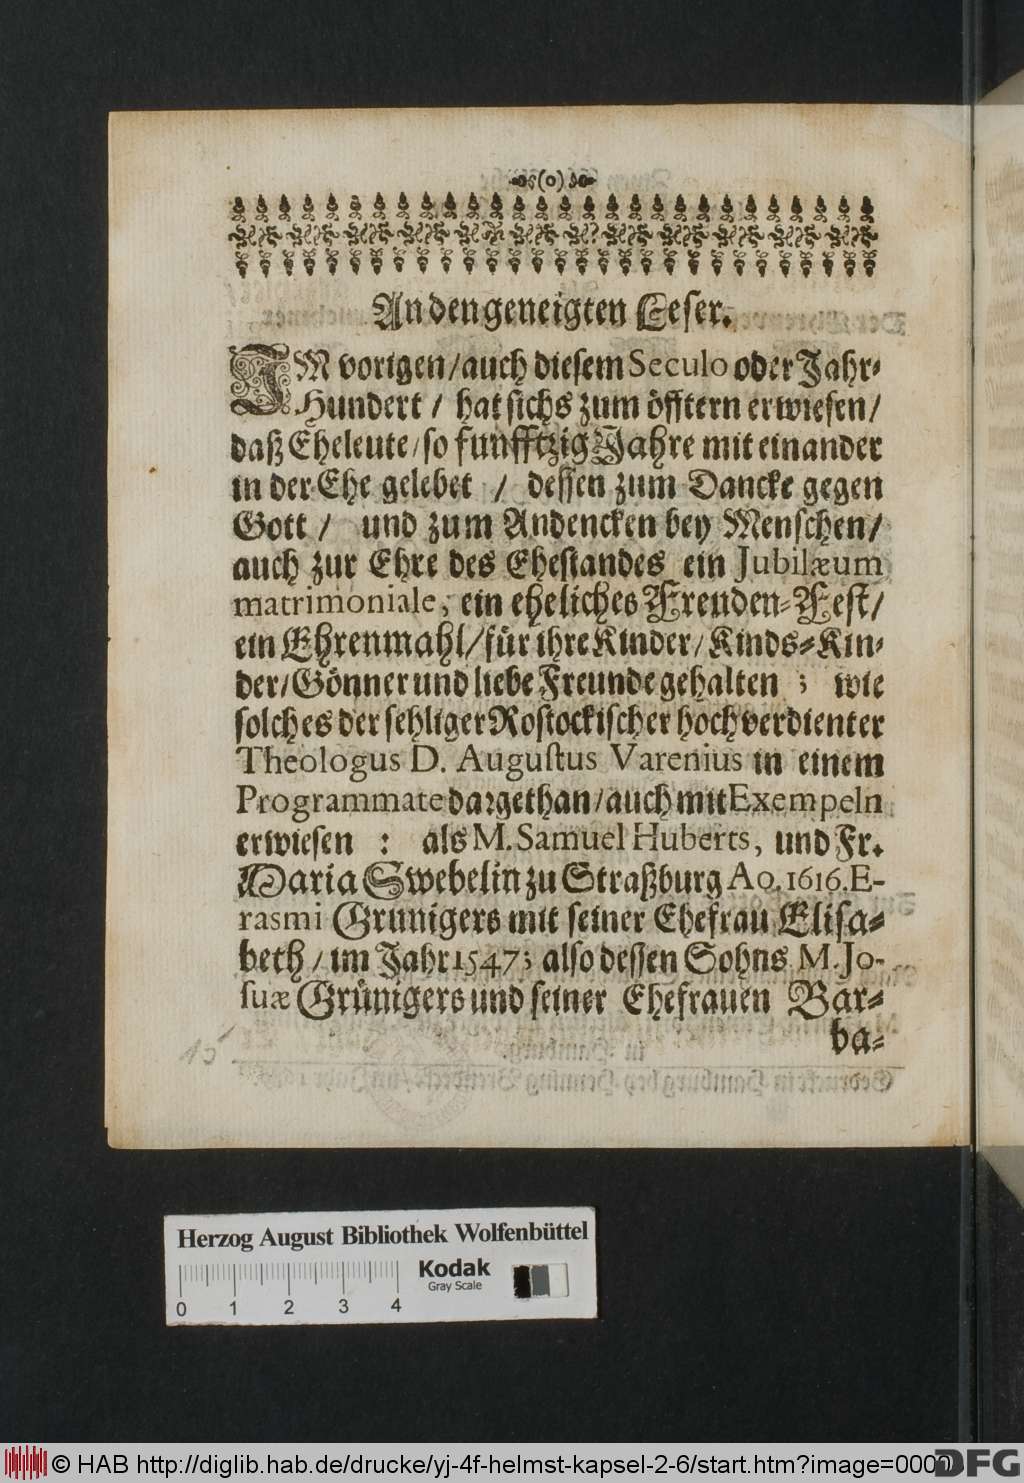 (o)
An den geneigten Leser.
IM vorigen / auch diesem Seculo oder Jahr-
Hundert / hat sichs zum öfftern erwiesen /
daß Eheleute / so funfftzig Jahre mit einander
in der Ehe gelebet / dessen zum Dancke gegen
Gott / und zum Andencken bey Menschen /
auch zur Ehre des Ehestandes ein Jubilæum
matrimoniale, ein eheliches Freuden-Fest /
ein Ehrenmahl / für ihre Kinder / Kinds-Kin-
der / Gönner und liebe Freunde gehalten ; wie
solches der sehliger Rostockischer hochverdienter
Theologus D. Augustus Varenius in einem
Programmate dargethan / auch mit Exempeln
erwiesen : als M. Samuel Huberts, und Fr.
Maria Swebelin zu Straßburg Ao. 1616. E-
rasmi Grunigers mit seiner Ehefrau Elisa-
beth / im Jahr 1547; also dessen Sohns M. Jo-
suæ Grünigers und seiner Ehefrauen Bar-
ba-
15
Herzog August Bibliothek Wolfenbüttel
Kodak
Gray Scale
0 1 2 3 4
© HAB http://diglib.hab.de/drucke/yj-4f-helmst-kapsel-2-6/start.htm?image=000
DFG